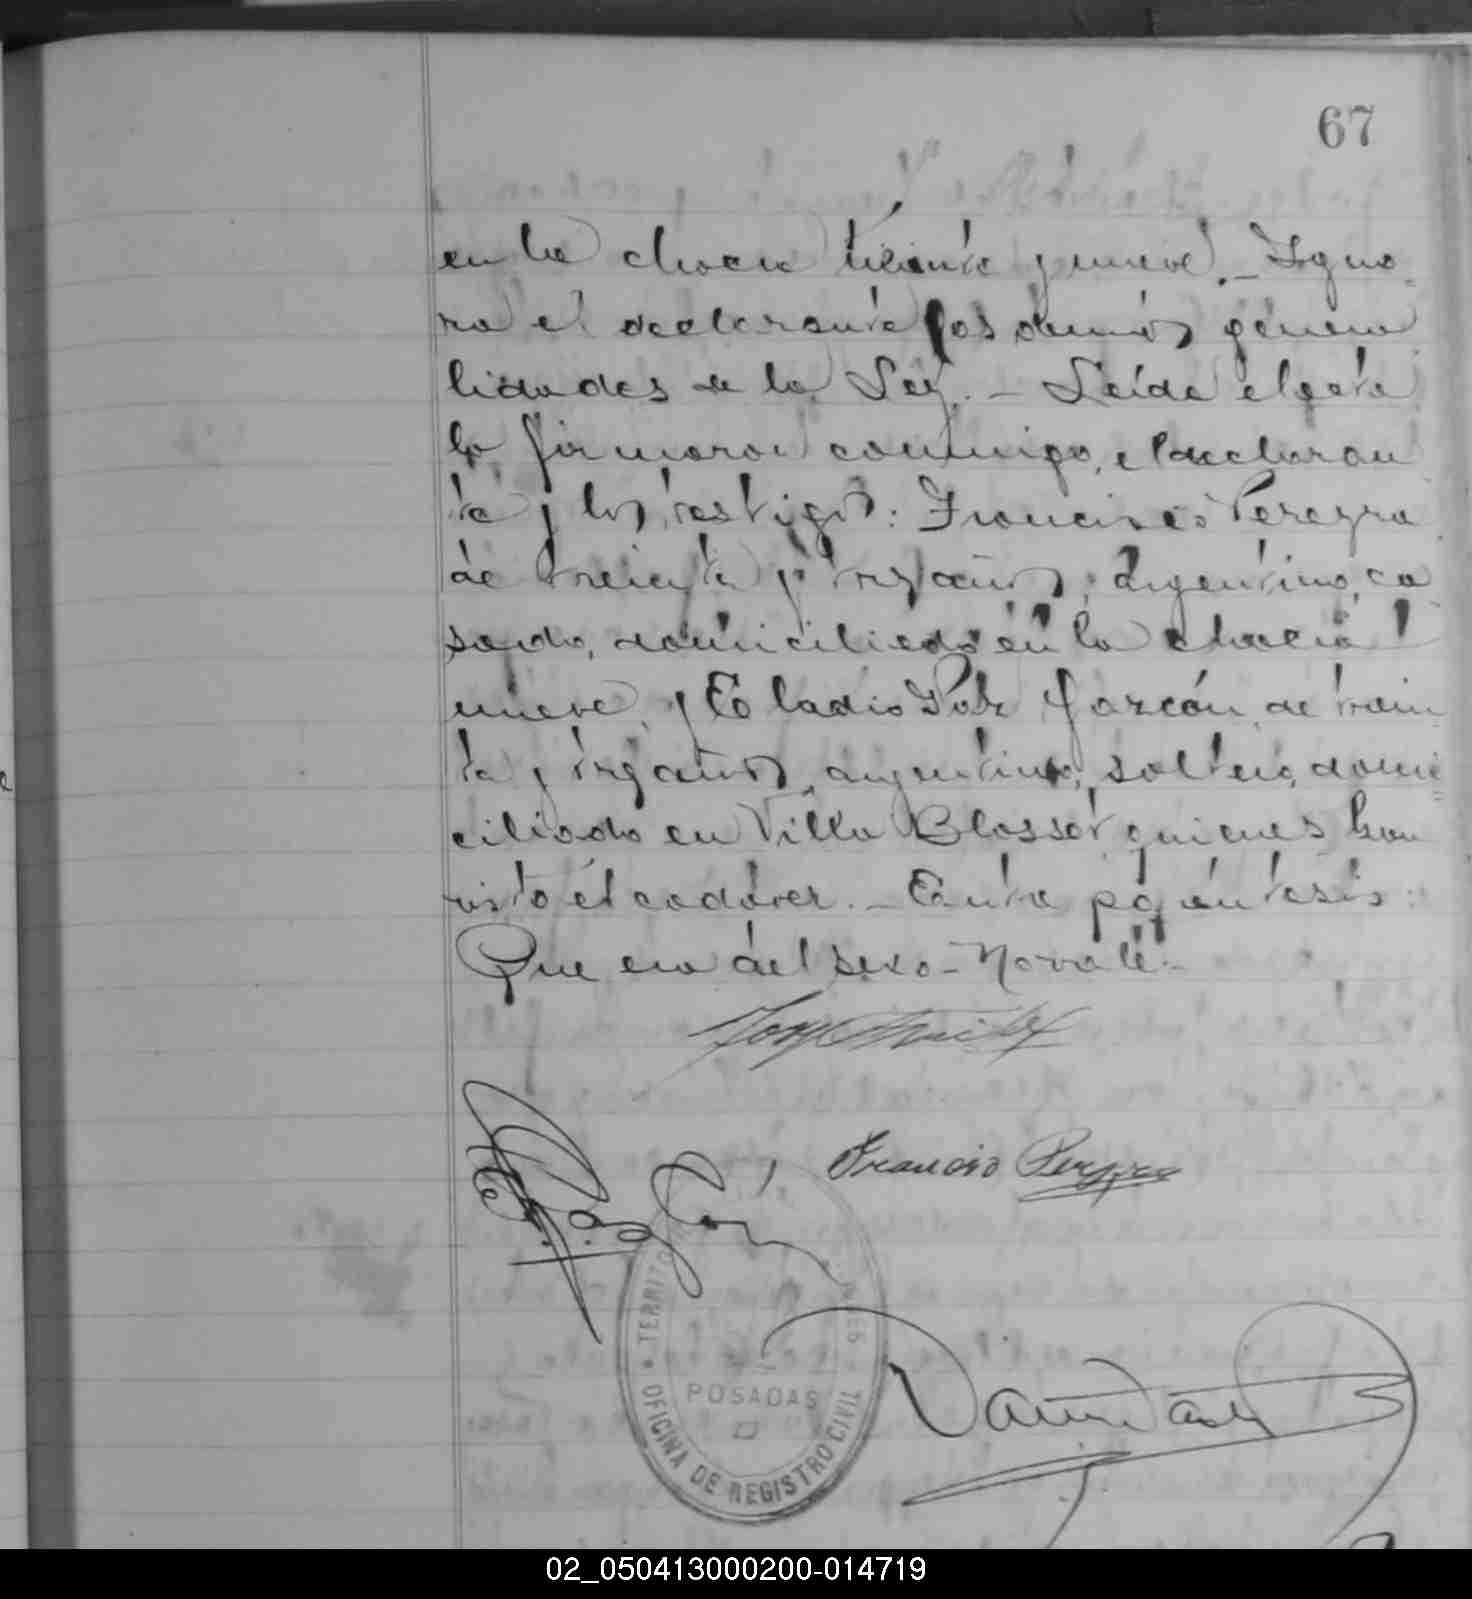 67
en la chacra treinta y nueve. _ Igno
ra el declarante las demás genera
lidades de la Ley. _ Leída el acta
la firmaron conmigo, el declaran
te y los testigos: Francisco Pereyra
de treinta y tres años, argentino, ca
sado, domiciliado en la chacra
nueve, y Eladio Garzón, de trein
ta y tres años, argentino, soltero, domi
ciliado en Villa Blosset quienes han
visto el cadáver. _ Entre paréntesis:
Que era del sexo - No vale. -
Francisco Pereyra
TERRITO
POSADAS
OFICINA DE REGISTRO CIVIL
02_050413000200-014719